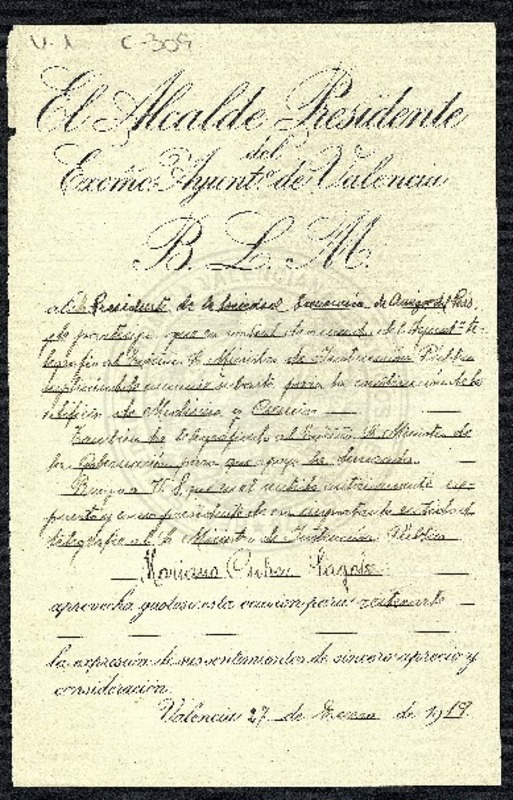 V. 1 C-309
El Alcalde Presidente
del
Excmo. Ayuntº de Valencia
B. L. M.
Presidente de la Sociedad Económica de Amigos del País,
y le participa que en virtud de acuerdo del Ayuntº te-
legrafía al Excmo Sr. Ministro de Instrucción Pública
subasta para la construcción de los
edificios de Medicina y Ciencias
También ha telegrafiado al Excmo Sr. Ministro de
la Gobernación para que apoye la demanda.
Ruega a V. S. que en el sentido anteriormente ex-
puesto y como presidente de esa importante entidad
telegrafíe al Sr. Ministro de Instrucción Pública
Mariano
aprovecha gustoso esta ocasión para reiterarle
la expresión de sus sentimientos de sincero aprecio y
consideración.
Valencia 27 de Enero de 1919.